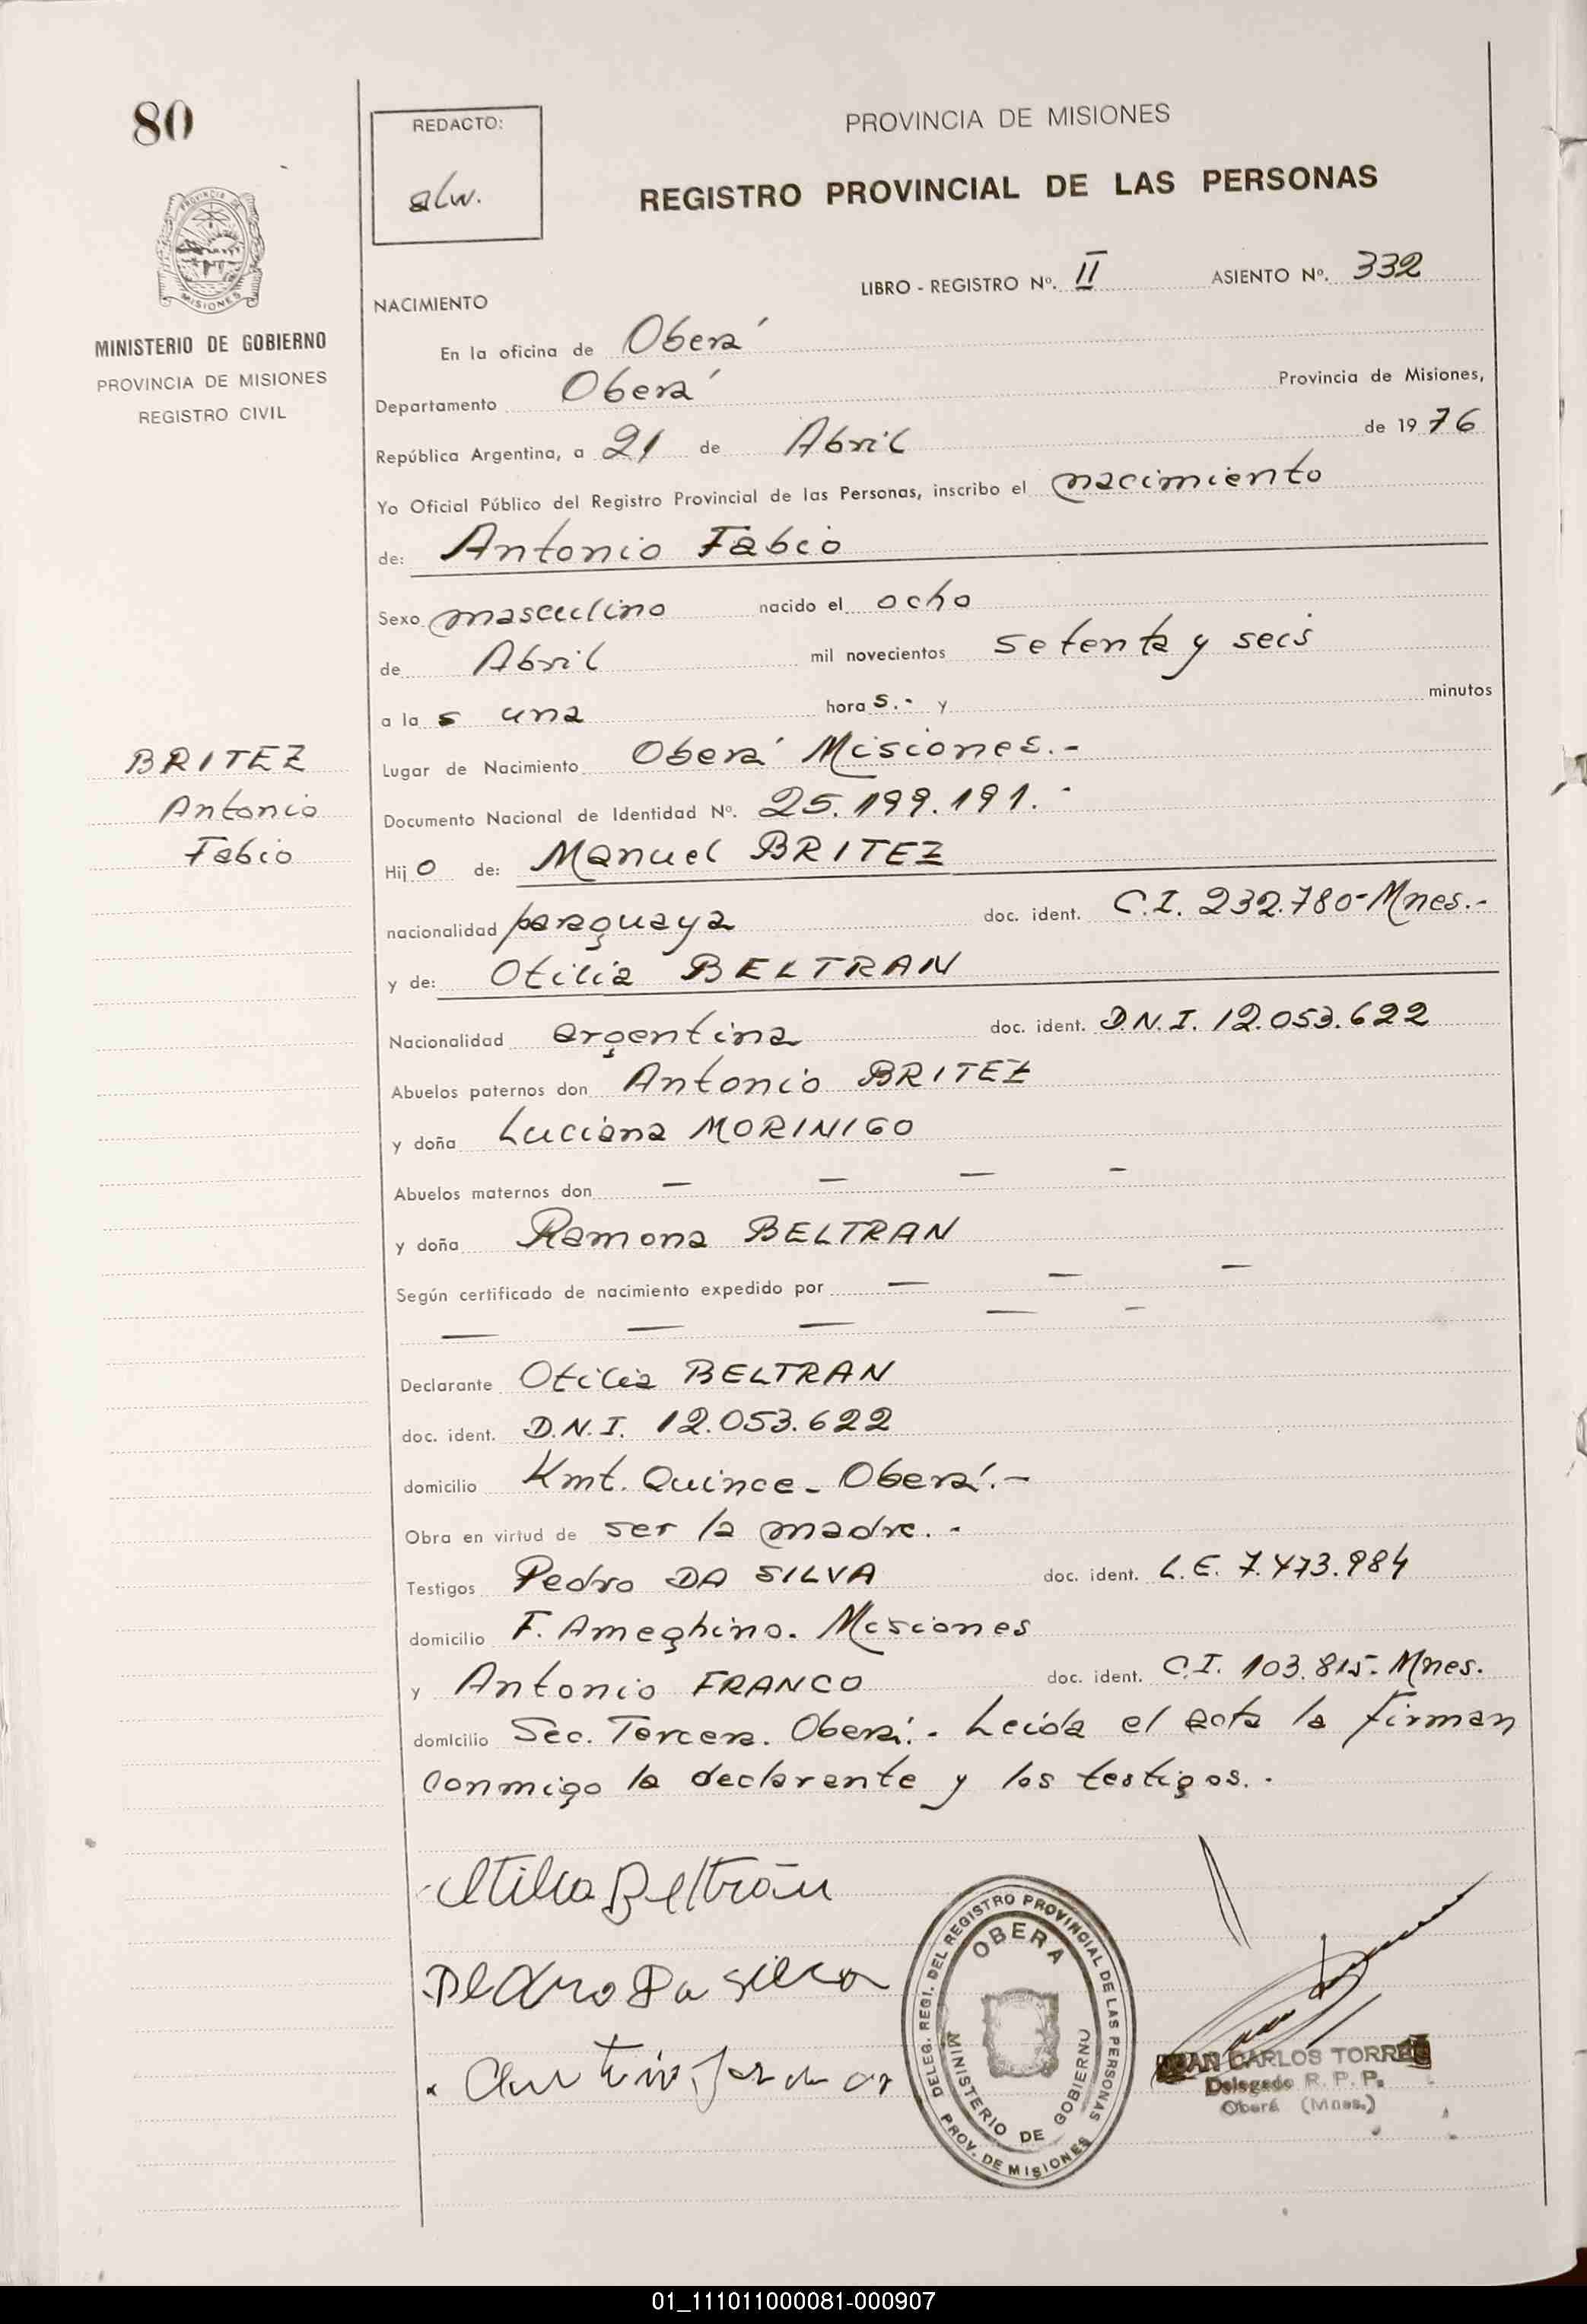 80
REDACTO:
alw.
PROVINCIA DE MISIONES
REGISTRO PROVINCIAL DE LAS PERSONAS
PROVINCIA DE
MISIONES
MINISTERIO DE GOBIERNO
PROVINCIA DE MISIONES
REGISTRO CIVIL
LIBRO - REGISTRO Nº. II ASIENTO Nº. 332
NACIMIENTO
En la oficina de Oberá
Departamento Oberá Provincia de Misiones,
República Argentina, a 21 de Abril de 1976
Yo Oficial Público del Registro Provincial de las Personas, inscribo el nacimiento
de: Antonio Fabio
Sexo masculino nacido el ocho
de Abril mil novecientos setenta y seis
a las una horas.- y minutos
Lugar de Nacimiento Oberá Misiones.-
Documento Nacional de Identidad Nº. 25.199.191.-
BRITEZ
Antonio
Fabio
Hijo de: Manuel BRITEZ
nacionalidad paraguaya doc. ident. C.I. 232.780-Mnes.-
y de: Otilia BELTRAN
Nacionalidad argentina doc. ident. D.N.I. 12.053.622
Abuelos paternos don Antonio BRITEZ
y doña Luciana MORINIGO
Abuelos maternos don — — — -
y doña Ramona BELTRAN
Según certificado de nacimiento expedido por — — —
— — — — -
Declarante Otilia BELTRAN
doc. ident. D.N.I. 12.053.622
domicilio Kmt. Quince - Oberá.-
Obra en virtud de ser la madre.-
Testigos Pedro DA SILVA doc. ident. L.E. 7.473.984
domicilio F. Ameghino. Misiones
y Antonio FRANCO doc. ident. C.I. 103.815- Mnes.
domicilio Sec. Tercera. Oberá.- Leida el acta la firman
conmigo la declarante y los testigos.-
Otilia Beltrán
Pedro Da Silva
DELEG. REGI. DEL REGISTRO PROVINCIAL DE LAS PERSONAS
OBERA
MINISTERIO DE GOBIERNO
PROV. DE MISIONES
JUAN CARLOS TORRES
Delegado R. P. P.
Oberá (Mnes.)
01_111011000081-000907